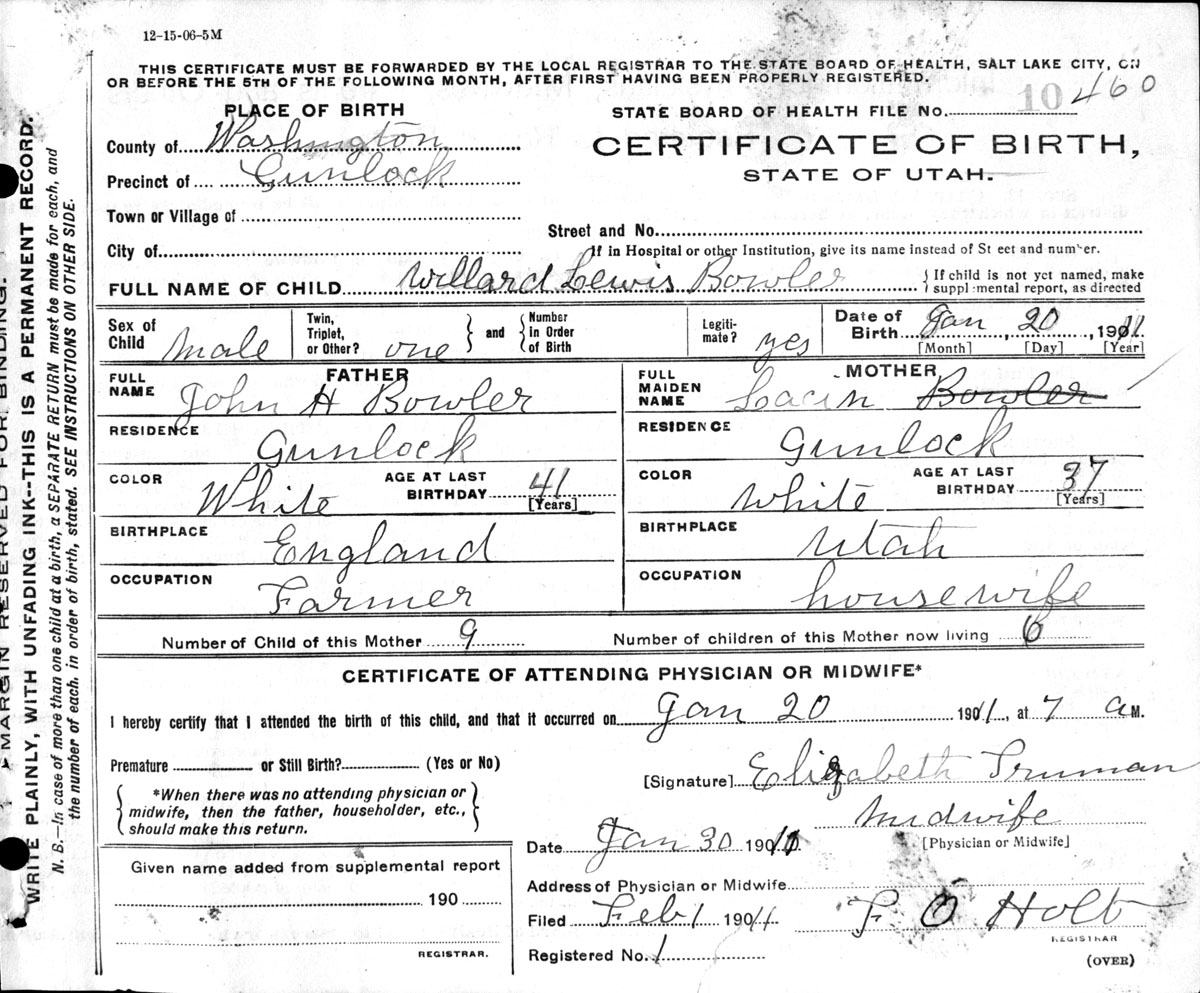 12-15-06-5M
THIS CERTIFICATE MUST BE FORWARDED BY THE LOCAL REGISTRAR TO THE STATE BOARD OF HEALTH, SALT LAKE CITY, ON
OR BEFORE THE 5TH OF THE FOLLOWING MONTH, AFTER FIRST HAVING BEEN PROPERLY REGISTERED.
PLACE OF BIRTH
STATE BOARD OF HEALTH FILE No. 10 460
County of Washington
CERTIFICATE OF BIRTH,
Precinct of Gunlock
STATE OF UTAH.
Town or Village of
Street and No.
City of
If in Hospital or other Institution, give its name instead of St eet and number.
FULL NAME OF CHILD Willard Lewis Bowler
If child is not yet named, make
suppl mental report, as directed
Sex of Child Male
Twin, Triplet, or Other? one
and Number in Order of Birth
Legiti- mate? yes
Date of Birth Jan 20, 1911
[Month] [Day] [Year]
FATHER
FULL NAME John H Bowler
RESIDENCE Gunlock
COLOR White
AGE AT LAST BIRTHDAY 41
[Years]
BIRTHPLACE England
OCCUPATION Farmer
MOTHER
FULL MAIDEN NAME Bowler
RESIDENCE Gunlock
COLOR White
AGE AT LAST BIRTHDAY 37
[Years]
BIRTHPLACE Utah
OCCUPATION housewife
Number of Child of this Mother 9
Number of children of this Mother now living 6
CERTIFICATE OF ATTENDING PHYSICIAN OR MIDWIFE*
I hereby certify that I attended the birth of this child, and that it occurred on Jan 20 1911, at 7 a M.
Premature or Still Birth? (Yes or No)
[Signature] Elizabeth Truman
*When there was no attending physician or
midwife, then the father, householder, etc.,
should make this return.
Midwife
[Physician or Midwife]
Date Jan 30 1911
Given name added from supplemental report
190
REGISTRAR.
Address of Physician or Midwife
Filed Feb 1 1911
F O Holt
REGISTRAR
Registered No. 1
(OVER)
MARGIN RESERVED FOR BINDING.
WRITE PLAINLY, WITH UNFADING INK--THIS IS A PERMANENT RECORD.
N. B.—In case of more than one child at a birth, a SEPARATE RETURN must be made for each, and
the number of each. in order of birth, stated. SEE INSTRUCTIONS ON OTHER SIDE.